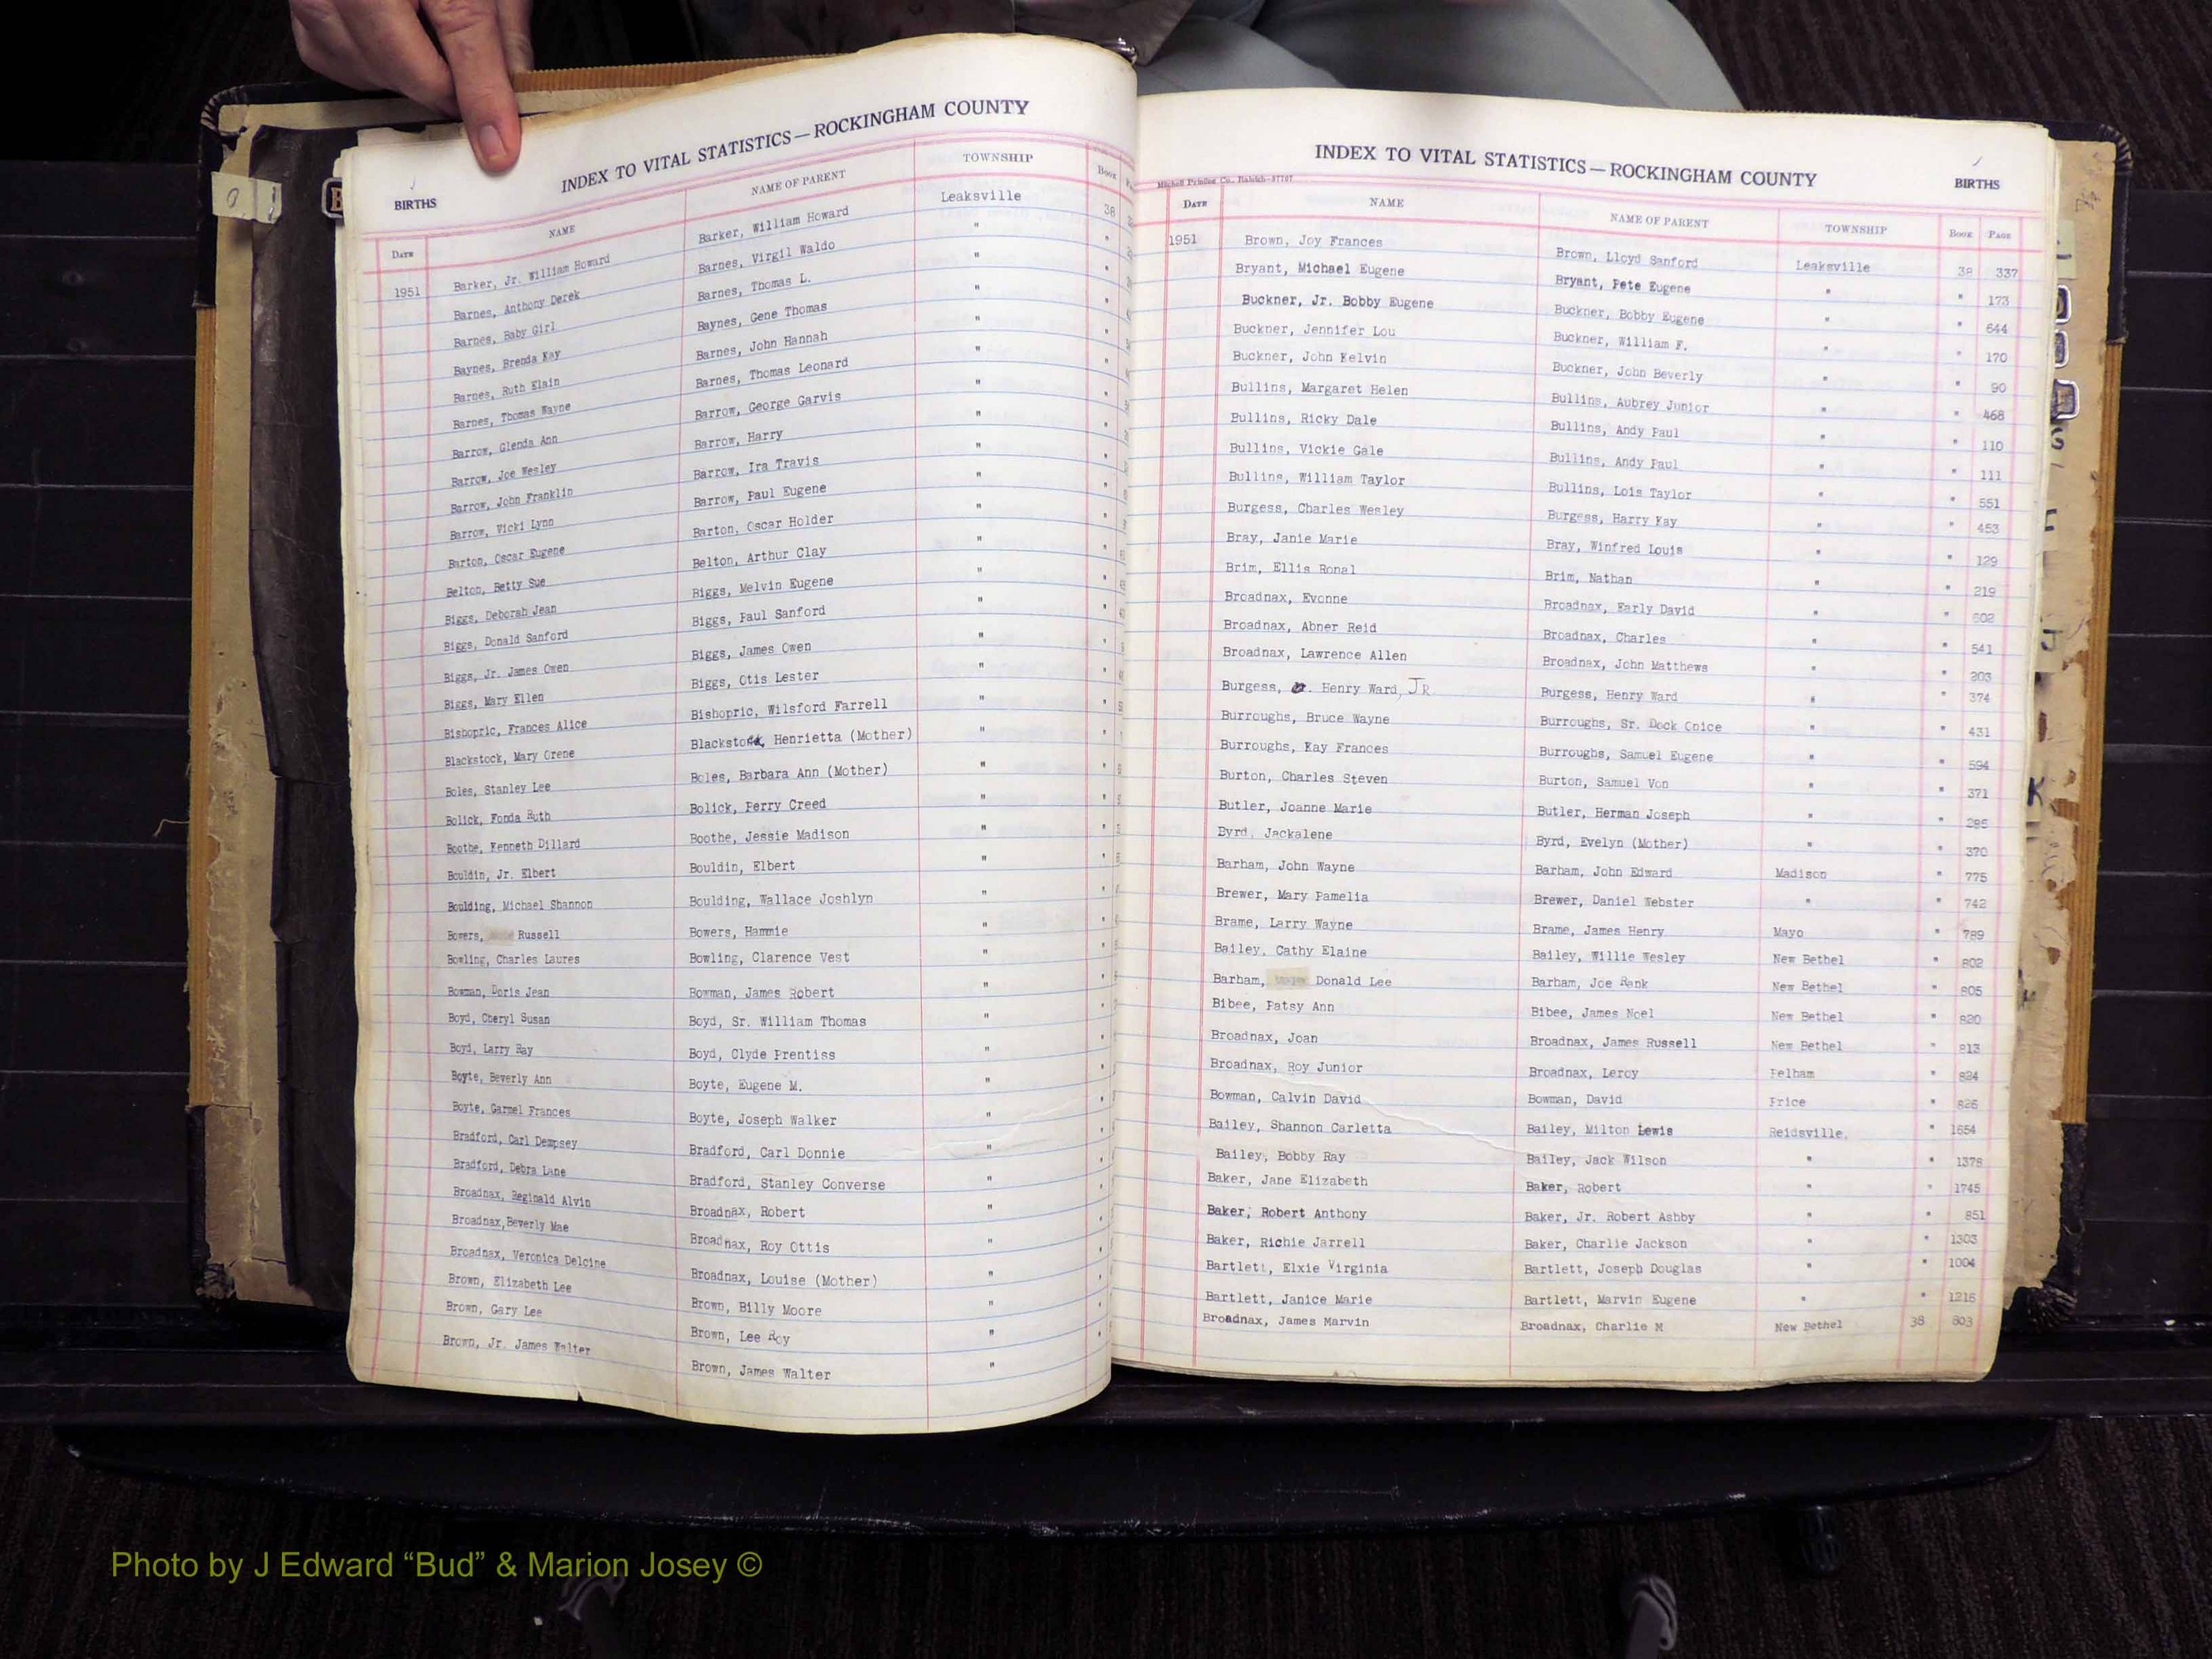 INDEX TO VITAL STATISTICS — ROCKINGHAM COUNTY
BIRTHS
DATE NAME NAME OF PARENT TOWNSHIP BOOK
1951 Barker, Jr. William Howard Barker, William Howard Leaksville 38
Barnes, Anthony Derek Barnes, Virgil Waldo " "
Barnes, Baby Girl Barnes, Thomas L. " "
Baynes, Brenda Kay Baynes, Gene Thomas " "
Barnes, Ruth Elain Barnes, John Hannah " "
Barnes, Thomas Wayne Barnes, Thomas Leonard " "
Barrow, Glenda Ann Barrow, George Garvis " "
Barrow, Joe Wesley Barrow, Harry " "
Barrow, John Franklin Barrow, Ira Travis " "
Barrow, Vicki Lynn Barrow, Paul Eugene " "
Barton, Oscar Eugene Barton, Oscar Holder " "
Belton, Betty Sue Belton, Arthur Clay " "
Biggs, Deborah Jean Biggs, Melvin Eugene " "
Biggs, Donald Sanford Biggs, Paul Sanford " "
Biggs, Jr. James Owen Biggs, James Owen " "
Biggs, Mary Ellen Biggs, Otis Lester " "
Bishopric, Frances Alice Bishopric, Wilsford Farrell " "
Blackstock, Mary Orene Blackstock, Henrietta (Mother) " "
Boles, Stanley Lee Boles, Barbara Ann (Mother) " "
Bolick, Fonda Ruth Bolick, Perry Creed " "
Boothe, Kenneth Dillard Boothe, Jessie Madison " "
Bouldin, Jr. Elbert Bouldin, Elbert " "
Boulding, Michael Shannon Boulding, Wallace Joshlyn " "
Bowers, Russell Bowers, Hammie " "
Bowling, Charles Laures Bowling, Clarence Vest " "
Bowman, Doris Jean Bowman, James Robert " "
Boyd, Cheryl Susan Boyd, Sr. William Thomas " "
Boyd, Larry Ray Boyd, Clyde Prentiss " "
Boyte, Beverly Ann Boyte, Eugene M. " "
Boyte, Garmel Frances Boyte, Joseph Walker " "
Bradford, Carl Dempsey Bradford, Carl Donnie " "
Bradford, Debra Lane Bradford, Stanley Converse " "
Broadnax, Reginald Alvin Broadnax, Robert " "
Broadnax,Beverly Mae Broadnax, Roy Ottis " "
Broadnax, Veronica Delcine Broadnax, Louise (Mother) " "
Brown, Elizabeth Lee Brown, Billy Moore " "
Brown, Gary Lee Brown, Lee Roy " "
Brown, Jr. James Walter Brown, James Walter "
INDEX TO VITAL STATISTICS — ROCKINGHAM COUNTY
Mitchell Printing Co., Raleigh
BIRTHS
DATE NAME NAME OF PARENT TOWNSHIP BOOK PAGE
1951 Brown, Joy Frances Brown, Lloyd Sanford Leaksville 38 337
Bryant, Michael Eugene Bryant, Pete Eugene " " 173
Buckner, Jr. Bobby Eugene Buckner, Bobby Eugene " " 644
Buckner, Jennifer Lou Buckner, William F. " " 170
Buckner, John Kelvin Buckner, John Beverly " " 90
Bullins, Margaret Helen Bullins, Aubrey Junior " " 468
Bullins, Ricky Dale Bullins, Andy Paul " " 110
Bullins, Vickie Gale Bullins, Andy Paul " " 111
Bullins, William Taylor Bullins, Lois Taylor " " 551
Burgess, Charles Wesley Burgess, Harry Kay " " 453
Bray, Janie Marie Bray, Winfred Louis " " 129
Brim, Ellis Ronal Brim, Nathan " " 219
Broadnax, Evonne Broadnax, Early David " " 602
Broadnax, Abner Reid Broadnax, Charles " " 541
Broadnax, Lawrence Allen Broadnax, John Matthews " " 203
Burgess, Henry Ward, JR Burgess, Henry Ward " " 374
Burroughs, Bruce Wayne Burroughs, Sr. Dock Onice " " 431
Burroughs, Kay Frances Burroughs, Samuel Eugene " " 594
Burton, Charles Steven Burton, Samuel Von " " 371
Butler, Joanne Marie Butler, Herman Joseph " " 285
Byrd, Jackalene Byrd, Evelyn (Mother) " " 370
Barham, John Wayne Barham, John Edward Madison " 775
Brewer, Mary Pamelia Brewer, Daniel Webster " " 742
Brame, Larry Wayne Brame, James Henry Mayo " 789
Bailey, Cathy Elaine Bailey, Willie Wesley New Bethel " 802
Barham, Donald Lee Barham, Joe Rank New Bethel " 805
Bibee, Patsy Ann Bibee, James Noel New Bethel " 820
Broadnax, Joan Broadnax, James Russell New Bethel " 813
Broadnax, Roy Junior Broadnax, Leroy Pelham " 824
Bowman, Calvin David Bowman, David Price " 826
Bailey, Shannon Carletta Bailey, Milton Lewis Reidsville, " 1654
Bailey, Bobby Ray Bailey, Jack Wilson " " 1378
Baker, Jane Elizabeth Baker, Robert " " 1745
Baker, Robert Anthony Baker, Jr. Robert Ashby " " 851
Baker, Richie Jarrell Baker, Charlie Jackson " " 1303
Bartlett, Elxie Virginia Bartlett, Joseph Douglas " " 1004
Bartlett, Janice Marie Bartlett, Marvin Eugene " " 1216
Broadnax, James Marvin Broadnax, Charlie M New Bethel 38 803
Photo by J Edward “Bud” & Marion Josey ©